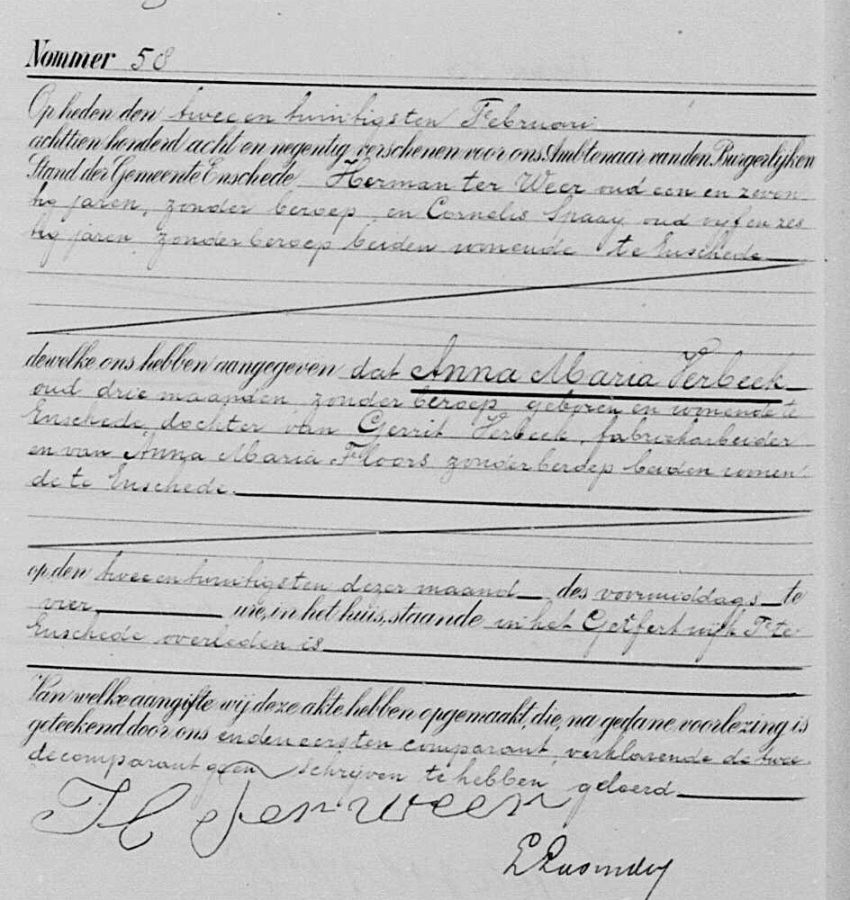 Nommer 58
Op heden den twee en twintigsten Februari
achttien honderd acht en negentig, verschenen voor ons Ambtenaar van den Burgerlijken
Stand der Gemeente Enschede Herman ter Weer oud een en zeven
tig jaren, zonder beroep, en Cornelis Spaay oud vijf en zes
tig jaren zonder beroep beiden wonende te Enschede
dewelke ons hebben aangegeven dat Anna Maria Verbeek
oud drie maanden, zonder beroep, geboren en wonende te
Enschede, dochter van Gerrit Verbeek, fabriekarbeider
en van Anna Maria Floors zonder beroep beiden wonen
de te Enschede.
op den twee en twintigsten dezer maand des voormiddags te
vier ure, in het huis, staande in het Getfert wijk F te
Enschede overleden is
Van welke aangifte wij deze akte hebben opgemaakt, die, na gedane voorlezing is
geteekend door ons en den eersten comparant, verklarende de twee
de comparant geen schrijven te hebben geleerd
H ter weer